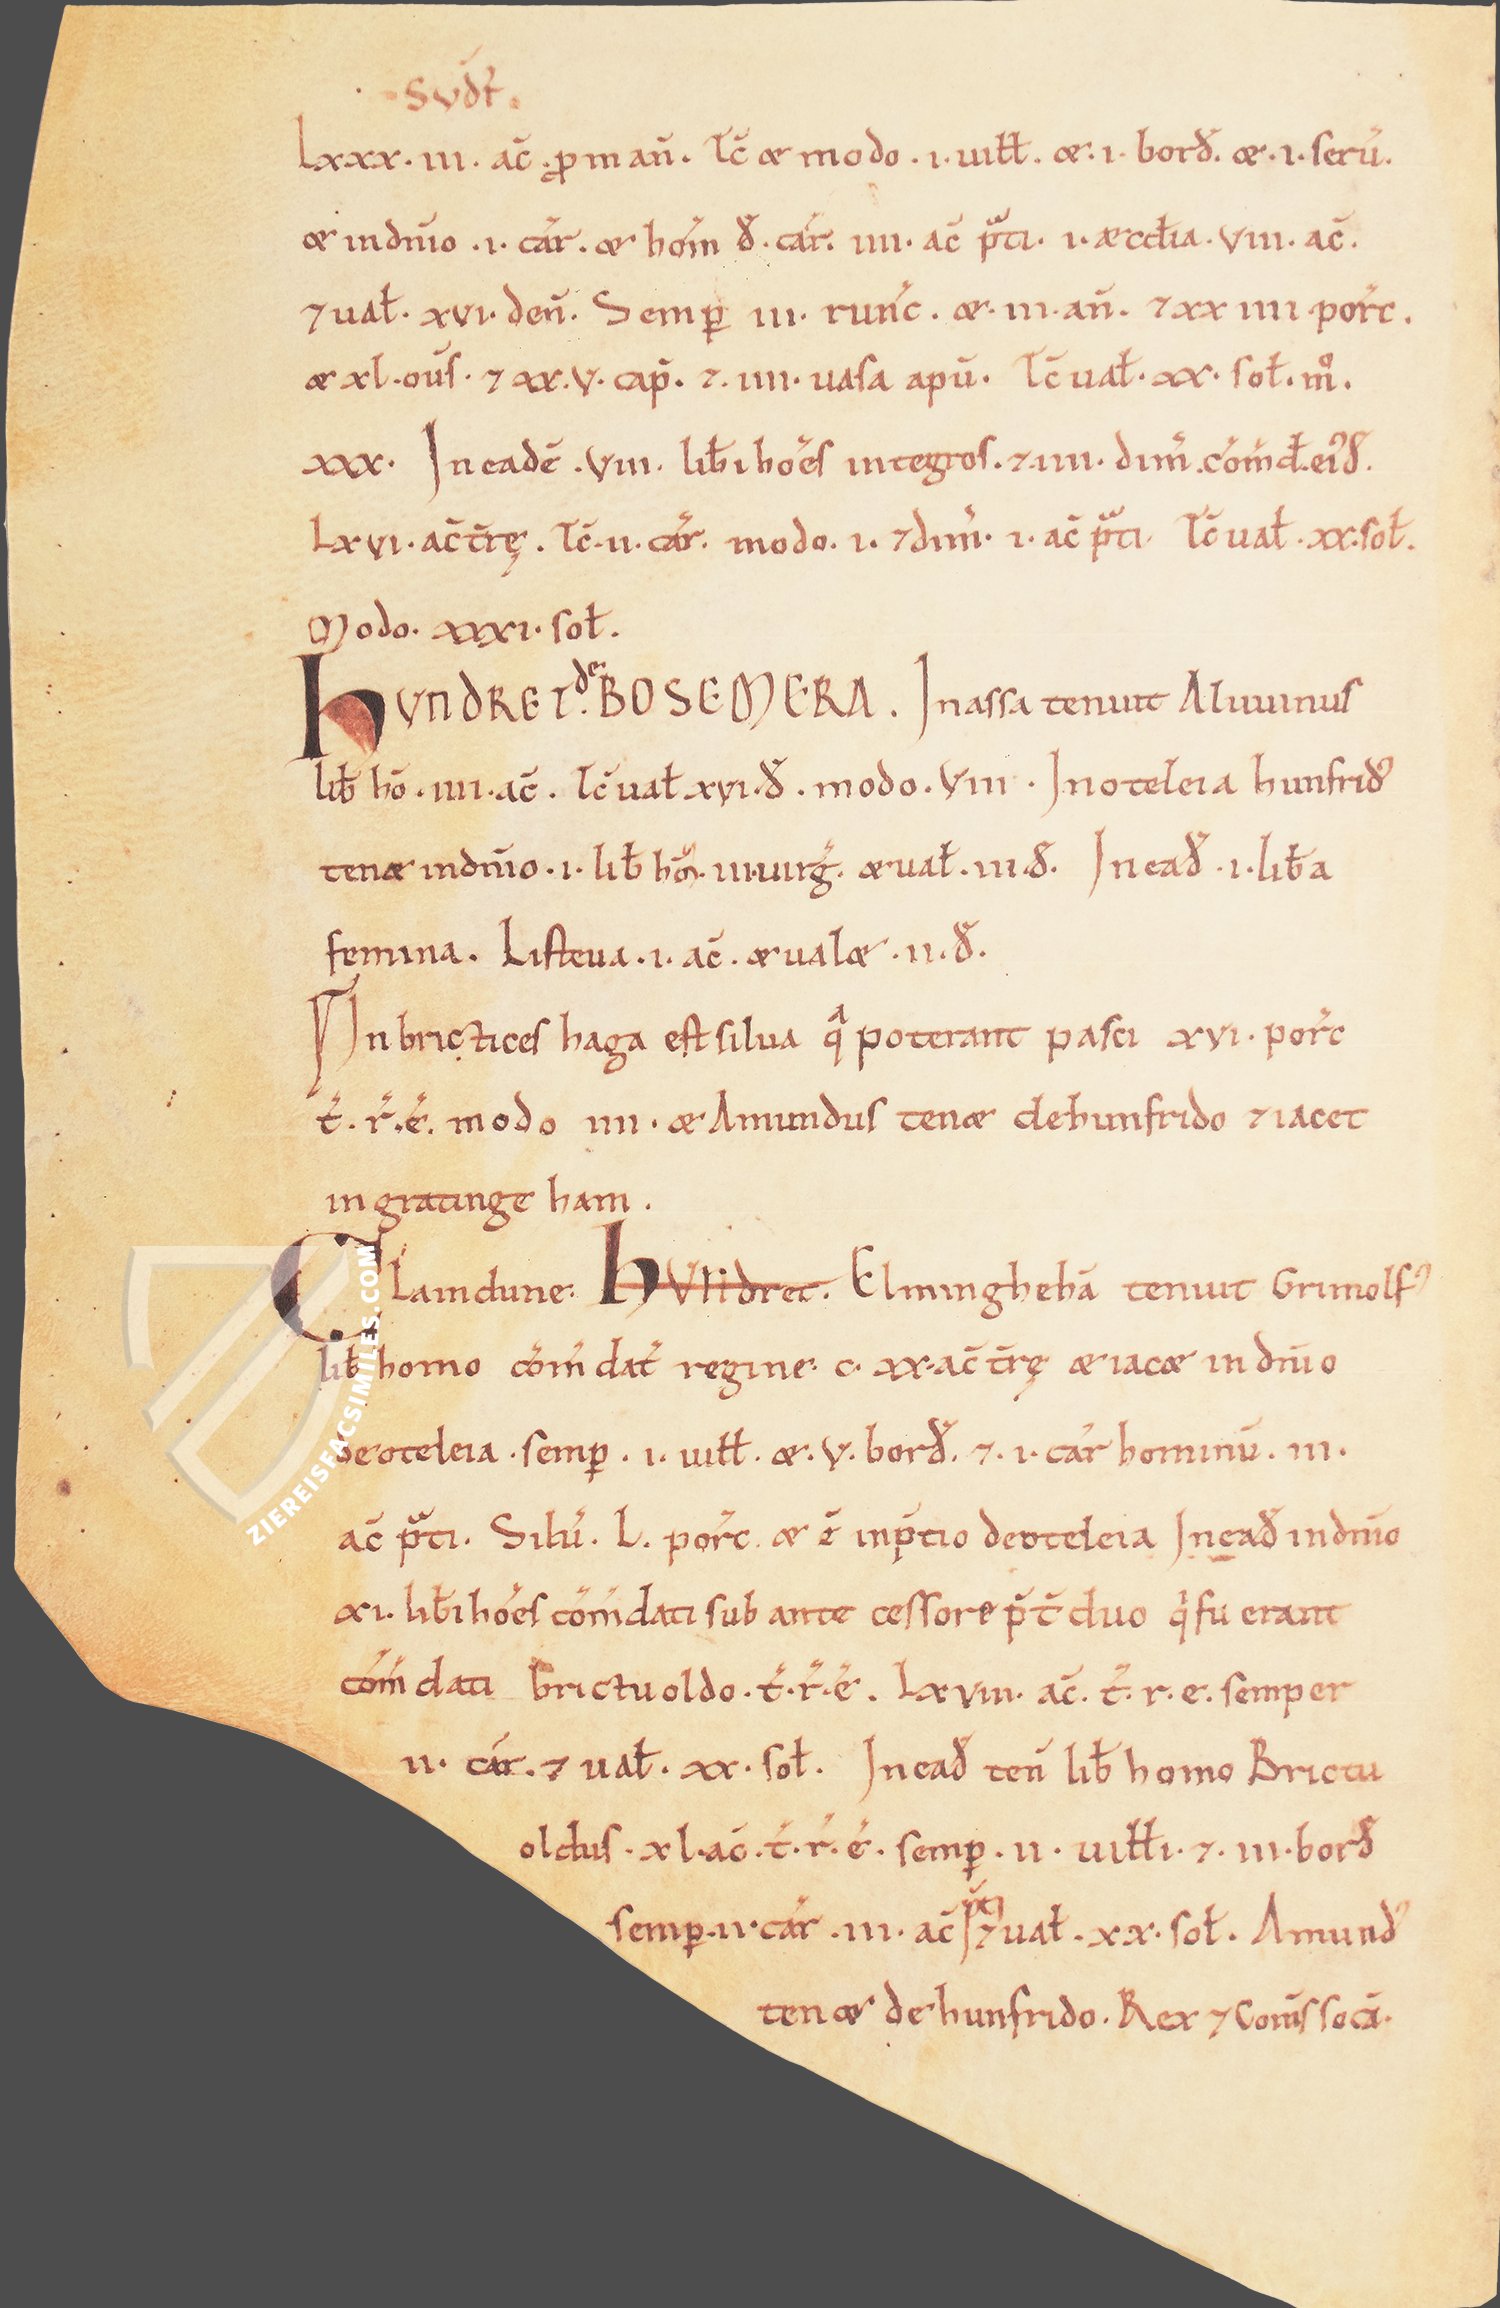 .Svdf̄.
Lxxx. iii. ac̄ .ꝓ man̄. Tc̄ æ modo .i. uiłł. æ. i. borđ. æ .i. seru̅.
æ in dn̄io .i. car̄. æ hom̄ đ. car̄. iiii. ac̄ p̄ti. i. æccłia. viii. ac̄.
⁊ uał. xvi. den̄. Semꝑ iii. runc̄. æ. iii. an̄. ⁊ xx iiii porc̄.
æ xl. ou̅s. ⁊ xx.v. cap̄. ⁊. iiii. uasa apu̅. Tc̄ uał. xx. soł. m̊.
xxx. In eade̅ .viii. lib̄i ho̅es integros. ⁊ iiii. dim̄. co̅m̄d̵.ei9đ.
Lxvi. ac̄ t̄rę. Tc̄. ii. car̄. modo. i. ⁊ dim̄. i. ac̄ p̄ti Tc̄ uał. xx. soł.
Modo. xxxi. soł.
HVNDRET. de BOSEMERA. In assa tenuit Aluuinus
lib̄ ho̅. iiii. ac̄. Tc̄ uał xvi. đ. modo. viii. In oteleia hunfrid9
tenæ in dn̄io .i. lib̄ ho̅m. iii. uirg̅. æ uał. iii. đ. In eađ .i. lib̄a
femina. Listeua .i. ac̄. æ ualæ. ii. đ.
In brictices haga est silua q̄ poterant pasci xvi. porc̄
t̄. r̄. e̅. modo iiii. æ Amundus tenæ de hunfrido ⁊ iacet
in gratinge ham.
Claindune. Hvndret. Elmingheha̅ tenuit Grimolf9
lib̄ homo co̅m̄dat̄ regine. c. xx. ac̄ t̄rę æ iacæ in dn̄io
de oteleia. semꝑ .i. uiłł. æ. v. borđ. ⁊. i. car̄ hominu̅. iii.
ac̄ p̄ti. Silu̅. L. porc̄. æ e̅ in p̄tio de oteleia In eađ in dn̄io
xi. lib̄i ho̅es co̅m̄dati sub ante cessore p̄t̄ duo q̄ fuerant
co̅m̄dati Brictuoldo. t̄. r̄. e̅. Lxviii. ac̄. t̄. r. e. semper
ii. car̄. ⁊ uał. xx. soł. In eađ ten̄ lib̄ homo Brictu
oldus. xl. ac̄. t̄. r̄. e̅. semꝑ. ii. uiłłi. ⁊. iii. borđ
semꝑ. ii. car̄. iii. ac̄ p̄ti ⁊ uał. xx. soł. Amund9
tenæ de hunfrido. Rex ⁊ Com̄s soca̅.
ZIEREISFACSIMILES.COM